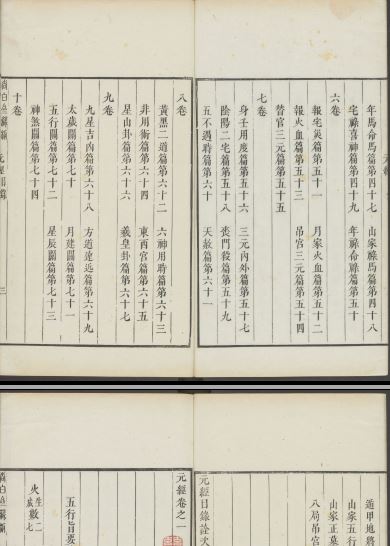 年馬命馬篇第四十七　山家祿馬篇第四十八
宅祿喜神篇第四十九　年祿命祿篇第五十
六卷
報宅災篇第五十一　月家火血篇第五十二
報火血篇第五十三　吊宮三元篇第五十四
替宮三元篇第五十五
七卷
身壬用度篇第五十六　三元內外篇第五十七
陰陽二宅篇第五十八　喪門殺篇第五十九
五不遇時篇第六十　天赦篇第六十一
八卷
黃黑二道篇第六十二　六神用時篇第六十三
非用術篇第六十四　東西宮篇第六十五
星山卦篇第六十六　羲皇卦篇第六十七
九卷
九星吉凶篇第六十八　方道遠近篇第六十九
太歲圖篇第七十　月建圖篇第七十一
五行圖篇第七十二　星辰圖篇第七十三
神煞圖篇第七十四
十卷
三
遁甲地將
山家五行
山家正墓
八局吊宮
元經目錄詮次
元經卷之一
五行旨要
火生數二
成數七